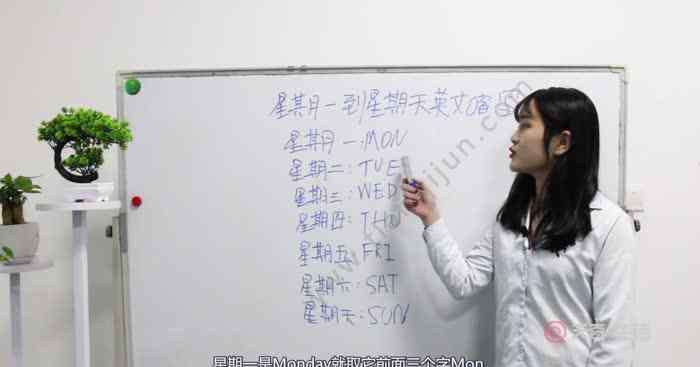 星期一到星期天英文缩写
星期一:MON
星期二:TUE
星期三:WED
星期四:THU
星期五:FRI
星期六:SAT
星期天:SUN
星期一是Monday就取它前面三个字Mon